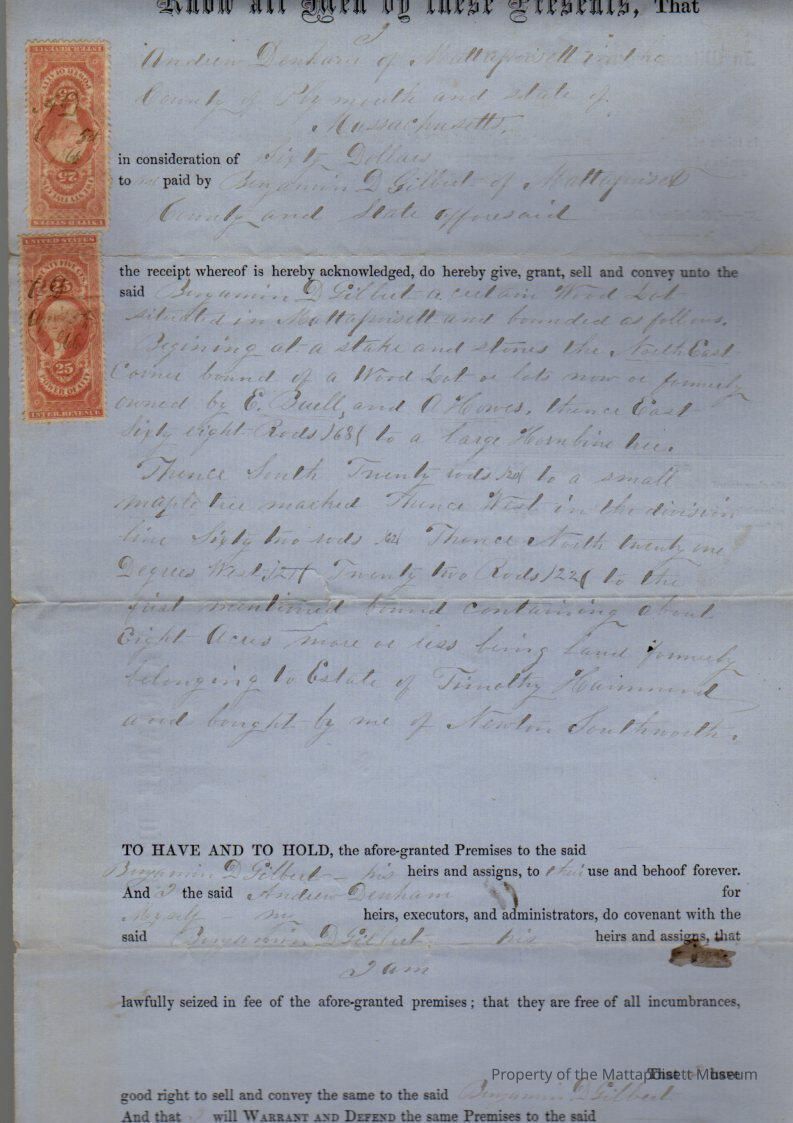 Know all Men by these Presents, That
I
Andrew Denham of Mattapoisett in the
County of Plymouth and state of
Massachusetts,
in consideration of Sixty Dollars
to me paid by Benjamin D Gilbert of Mattapoisett
County and State afforesaid
the receipt whereof is hereby acknowledged, do hereby give, grant, sell and convey unto the
said Benjamin D Gilbert a certain Wood Lot
situated in Mattapoisett and bounded as follows.
Begining at a stake and stones the North East
Corner bound of a Wood Lot or lots now or formerly
owned by E. Buell, and O Howes, thence East
Sixty eight Rods )68( to a large Hornbine tree.
Thence South Twenty rods )20( to a small
maple tree marked Thence West in the division
line Sixty two rods )62( Thence North twenty one
Degrees West )21( Twenty two Rods )22( to the
first mentioned bound containing about
Eight Acres more or less being Land formerly
belonging to Estate of Timothy Hammond
and bought by me of Newton Southworth.
TO HAVE AND TO HOLD, the afore-granted Premises to the said
Benjamin D Gilbert his heirs and assigns, to their use and behoof forever.
And I the said Andrew Denham for
Myself my heirs, executors, and administrators, do covenant with the
said Benjamin D Gilbert his heirs and assigns, that
I am
lawfully seized in fee of the afore-granted premises; that they are free of all incumbrances,
That I have
good right to sell and convey the same to the said Benjamin D Gilbert
And that I will WARRANT AND DEFEND the same Premises to the said
UNITED STATES
25
INTER. REVENUE
Property of the Mattapoisett Museum